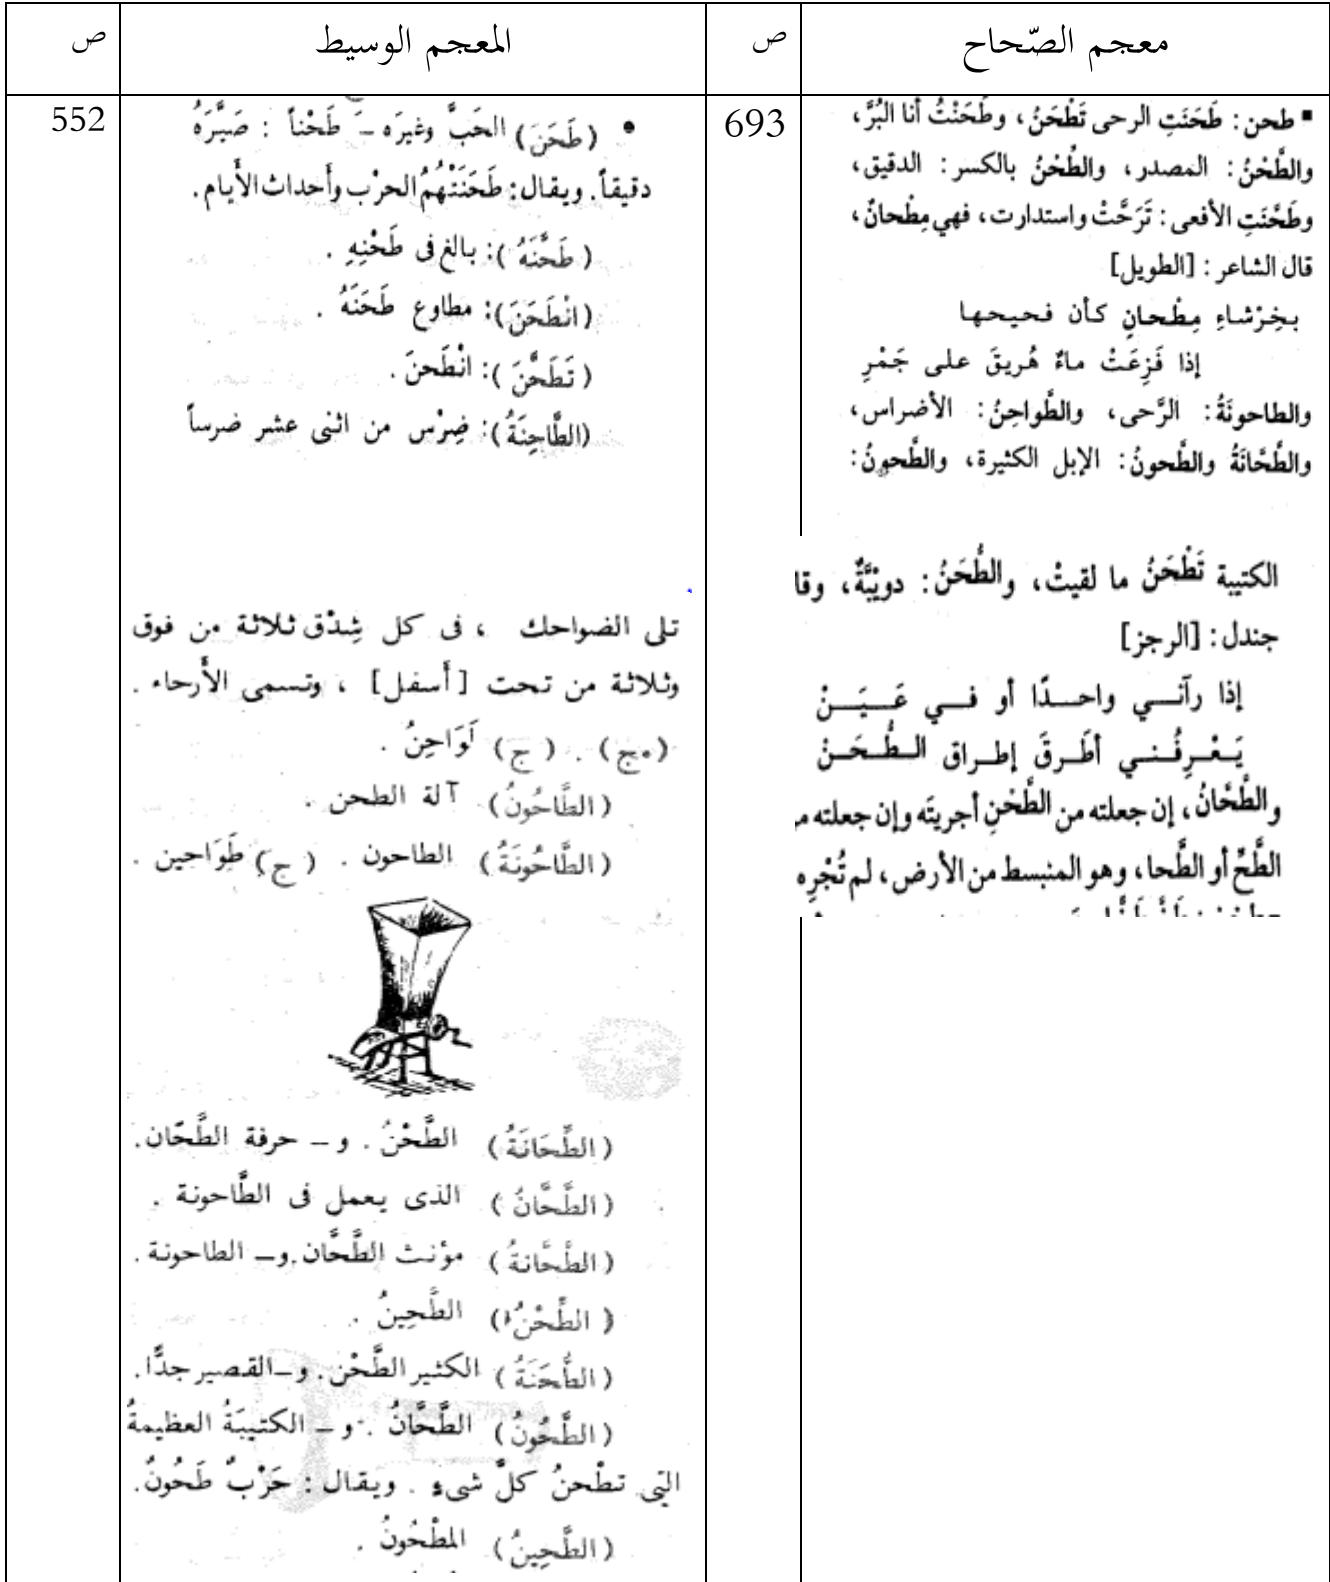 معجم الصّحاح
ص
المعجم الوسيط
ص
693
▪ طحن: طَحَنَتِ الرحى تَطْحَنُ، وطَحَنْتُ أنا البُرَّ،
والطَّحْنُ: المصدر، والطِّحْنُ بالكسر: الدقيق،
وطَحَّنَتِ الأفعى: تَرَحَّتْ واستدارت، فهي مِطْحانٌ،
قال الشاعر: [الطويل]
بخِرْشاءِ مِطْحانٍ كأن فحيحها
إذا فَزِعَتْ ماءٌ هُريقَ على جَمْرِ
والطاحونَةُ: الرَّحى، والطَّواحِنُ: الأضراس،
والطَّحَّانَةُ والطَّحونُ: الإبل الكثيرة، والطَّحونُ:
الكتيبة تَطْحَنُ ما لقيتْ، والطُّحَنُ: دويْبَّةٌ، وقا
جندل: [الرجز]
إذا رآنـي واحـدًا أو فـي عَـيَـنْ
يَـعْـرِفُـنـي أطَـرقَ إطـراق الـطُّـحَـنْ
والطَّحَّانُ، إن جعلته من الطَّحْنِ أجريتَه وإن جعلته مر
الطَّحِّ أو الطَّحا، وهو المنبسط من الأرض، لم تُجْرِه
552
• (طَحَنَ) الحَبَّ وغيرَه ـَ طَحْناً : صَيَّرَهُ
دقيقاً. ويقال: طَحَنَتْهُمُ الحرْب وأَحداث الأَيام.
(طَحَّنَهُ): بالغ فى طَحْنِهِ .
(انْطَحَنَ): مطاوع طَحَنَهُ .
(تَطَحَّنَ): انْطَحنَ .
(الطَّاحِنَةُ): ضِرْس من اثنى عشر ضرساً
تلى الضواحك ، فى كل شِدْق ثلاثة من فوق
وثلاثة من تحت [أَسفل] ، وتسمى الأَرحاء .
(مج) . (ج) لَوَاحِنُ .
(الطَّاحُونُ) آلة الطحن .
(الطَّاحُونَةُ) الطاحون . (ج) طَوَاحين .
(الطِّحَانَةُ) الطَّحْنُ . و ـ حرفة الطَّحّان.
(الطَّحَّانُ) الذى يعمل فى الطَّاحونة .
(الطَّحَّانةُ) مؤنث الطَّحَّان. و ـ الطاحونة.
(الطِّحْنُ) الطَّحِينُ .
(الطُّحَنَةُ) الكثير الطَّحْن. و ـ القصير جدًّا.
(الطَّحُونُ) الطَّحَّانُ . و ـ الكتيبَةُ العظيمةُ
التى تطْحنُ كلَّ شىءٍ . ويقال : حَرْبٌ طَحُونٌ.
(الطَّحِينُ) المطْحُونُ .